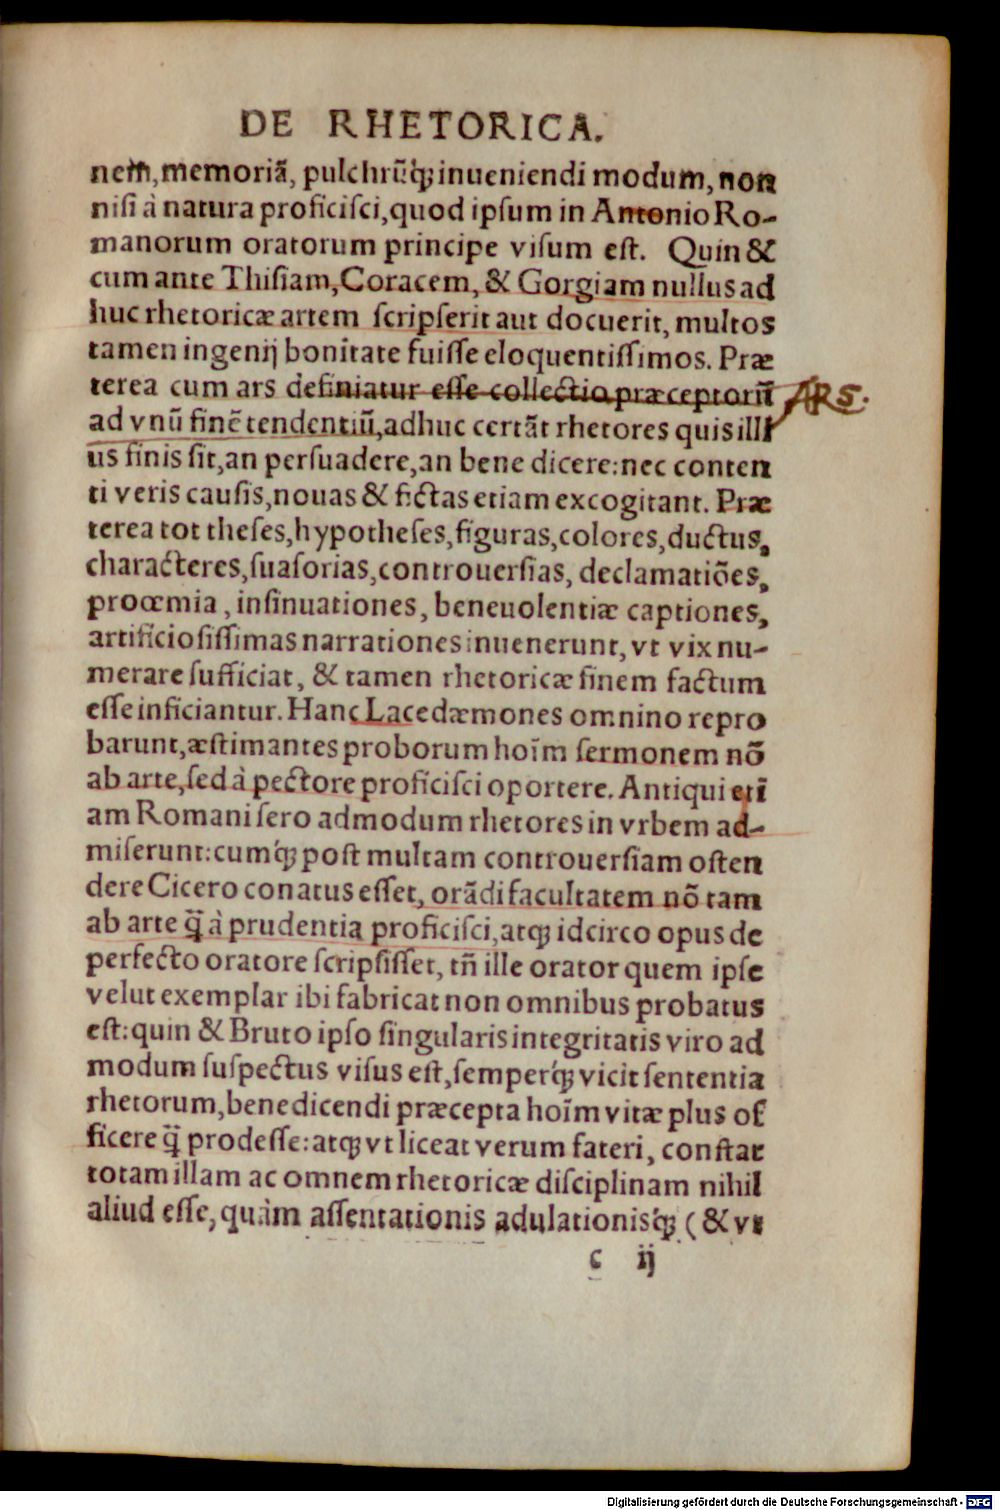 DE RHETORICA.
nem, memoriã, pulchrũq́; inueniendi modum, non
nisi à natura proficisci, quod ipsum in Antonio Ro-
manorum oratorum principe visum est. Quin &
cum ante Thisiam, Coracem, & Gorgiam nullus ad
huc rhetoricæ artem scripserit aut docuerit, multos
tamen ingenij bonitate fuisse eloquentissimos. Præ
terea cum ars definiatur esse collectio præceptorũ
ARS.
ad vnũ finẽ tendentiũ, adhuc certãt rhetores quis illi
us finis sit, an persuadere, an bene dicere: nec conten
ti veris causis, nouas & fictas etiam excogitant. Præ
terea tot theses, hypotheses, figuras, colores, ductus,
characteres, suasorias, controuersias, declamatiões,
proœmia, insinuationes, beneuolentiæ captiones,
artificiosissimas narrationes inuenerunt, vt vix nu-
merare sufficiat, & tamen rhetoricæ finem factum
esse inficiantur. Hanc Lacedæmones omnino repro
barunt, æstimantes proborum hoĩm sermonem nõ
ab arte, sed à pectore proficisci oportere. Antiqui etĩ
am Romani sero admodum rhetores in vrbem ad-
miserunt: cumq́; post multam controuersiam osten
dere Cicero conatus esset, orãdi facultatem nõ tam
ab arte q̃ à prudentia proficisci, atq; idcirco opus de
perfecto oratore scripsisset, tñ ille orator quem ipse
velut exemplar ibi fabricat non omnibus probatus
est: quin & Bruto ipso singularis integritatis viro ad
modum suspectus visus est, semperq́; vicit sententia
rhetorum, bene dicendi præcepta hoĩm vitæ plus of
ficere q̃ prodesse: atq; vt liceat verum fateri, constat
totam illam ac omnem rhetoricæ disciplinam nihil
aliud esse, quàm assentationis adulationisq́; (& vt
c ij
Digitalisierung gefördert durch die Deutsche Forschungsgemeinschaft - DFG